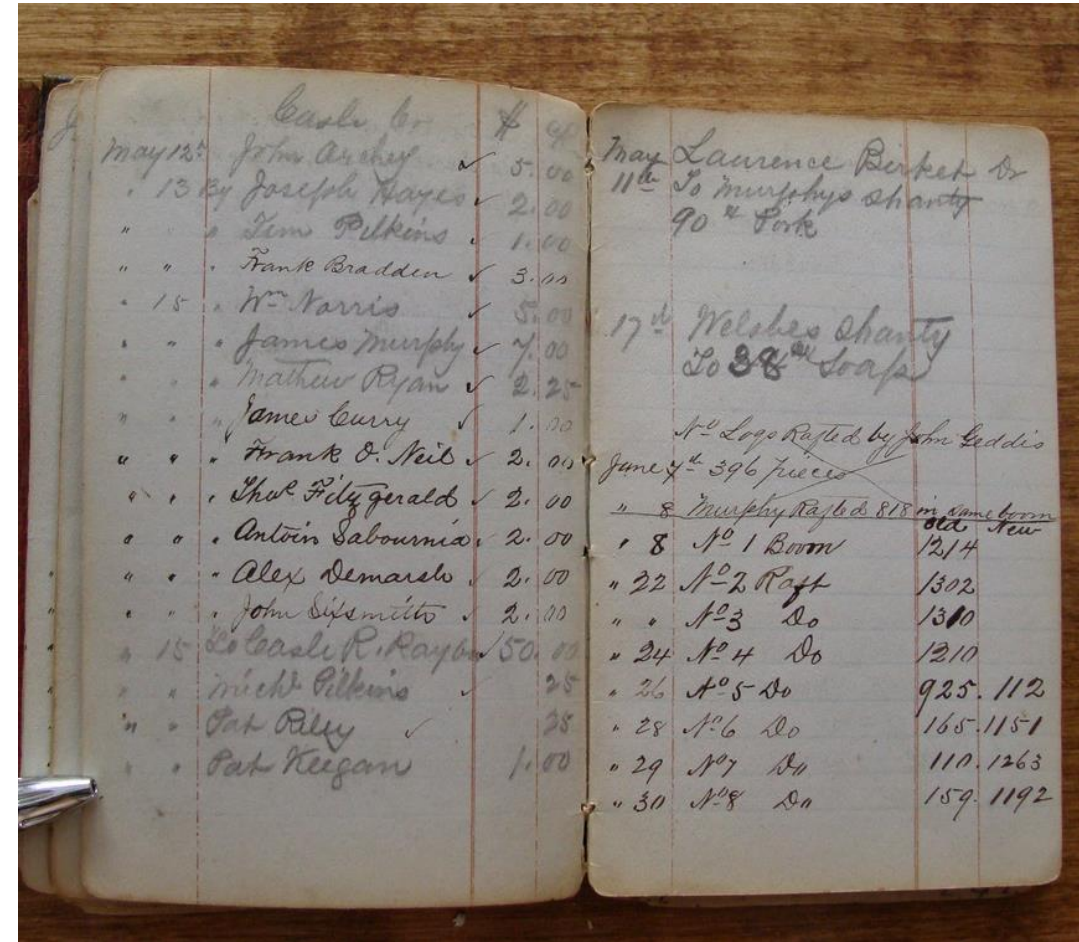 Cash Cr $ cts
May 12th John Archey ✓ 5.00
" 13 By Joseph Hayes ✓ 2.00
" " " Tim Pilkins ✓ 1.00
" " " Frank Bradden ✓ 3.00
" 15 " Wm Norris ✓ 5.00
" " " James Murphy ✓ 7.00
" " " Mathew Ryan ✓ 2.25
" " " James Curry ✓ 1.00
" " " Frank O. Neil ✓ 2.00
" " " Thos Fitzgerald ✓ 2.00
" " " Antoin Sabournia ✓ 2.00
" " " Alex Demarsh ✓ 2.00
" " " John Sixsmith ✓ 2.00
" 15 To Cash R. ✓ 50.00
" " Michl Pilkins ✓ 25
" " Pat Riley ✓ 25
" " Pat Keegan 1.00
May Laurence Birket Dr
11th To Murphys Shanty
90 lb Pork
17th Welshes Shanty
To 38 lb Soap
No Logs Rafted by John Geddis
June 7th 396 pieces
" 8 Murphy Rafted 818 in same boom
old New
" 8 No 1 Boom 1214
" 22 No 2 Raft 1302
" " No 3 Do 1310
" 24 No 4 Do 1210
" 26 No 5 Do 925. 112
" 28 No 6 Do 165. 1151
" 29 No 7 Do 110. 1263
" 30 No 8 Do 159. 1192